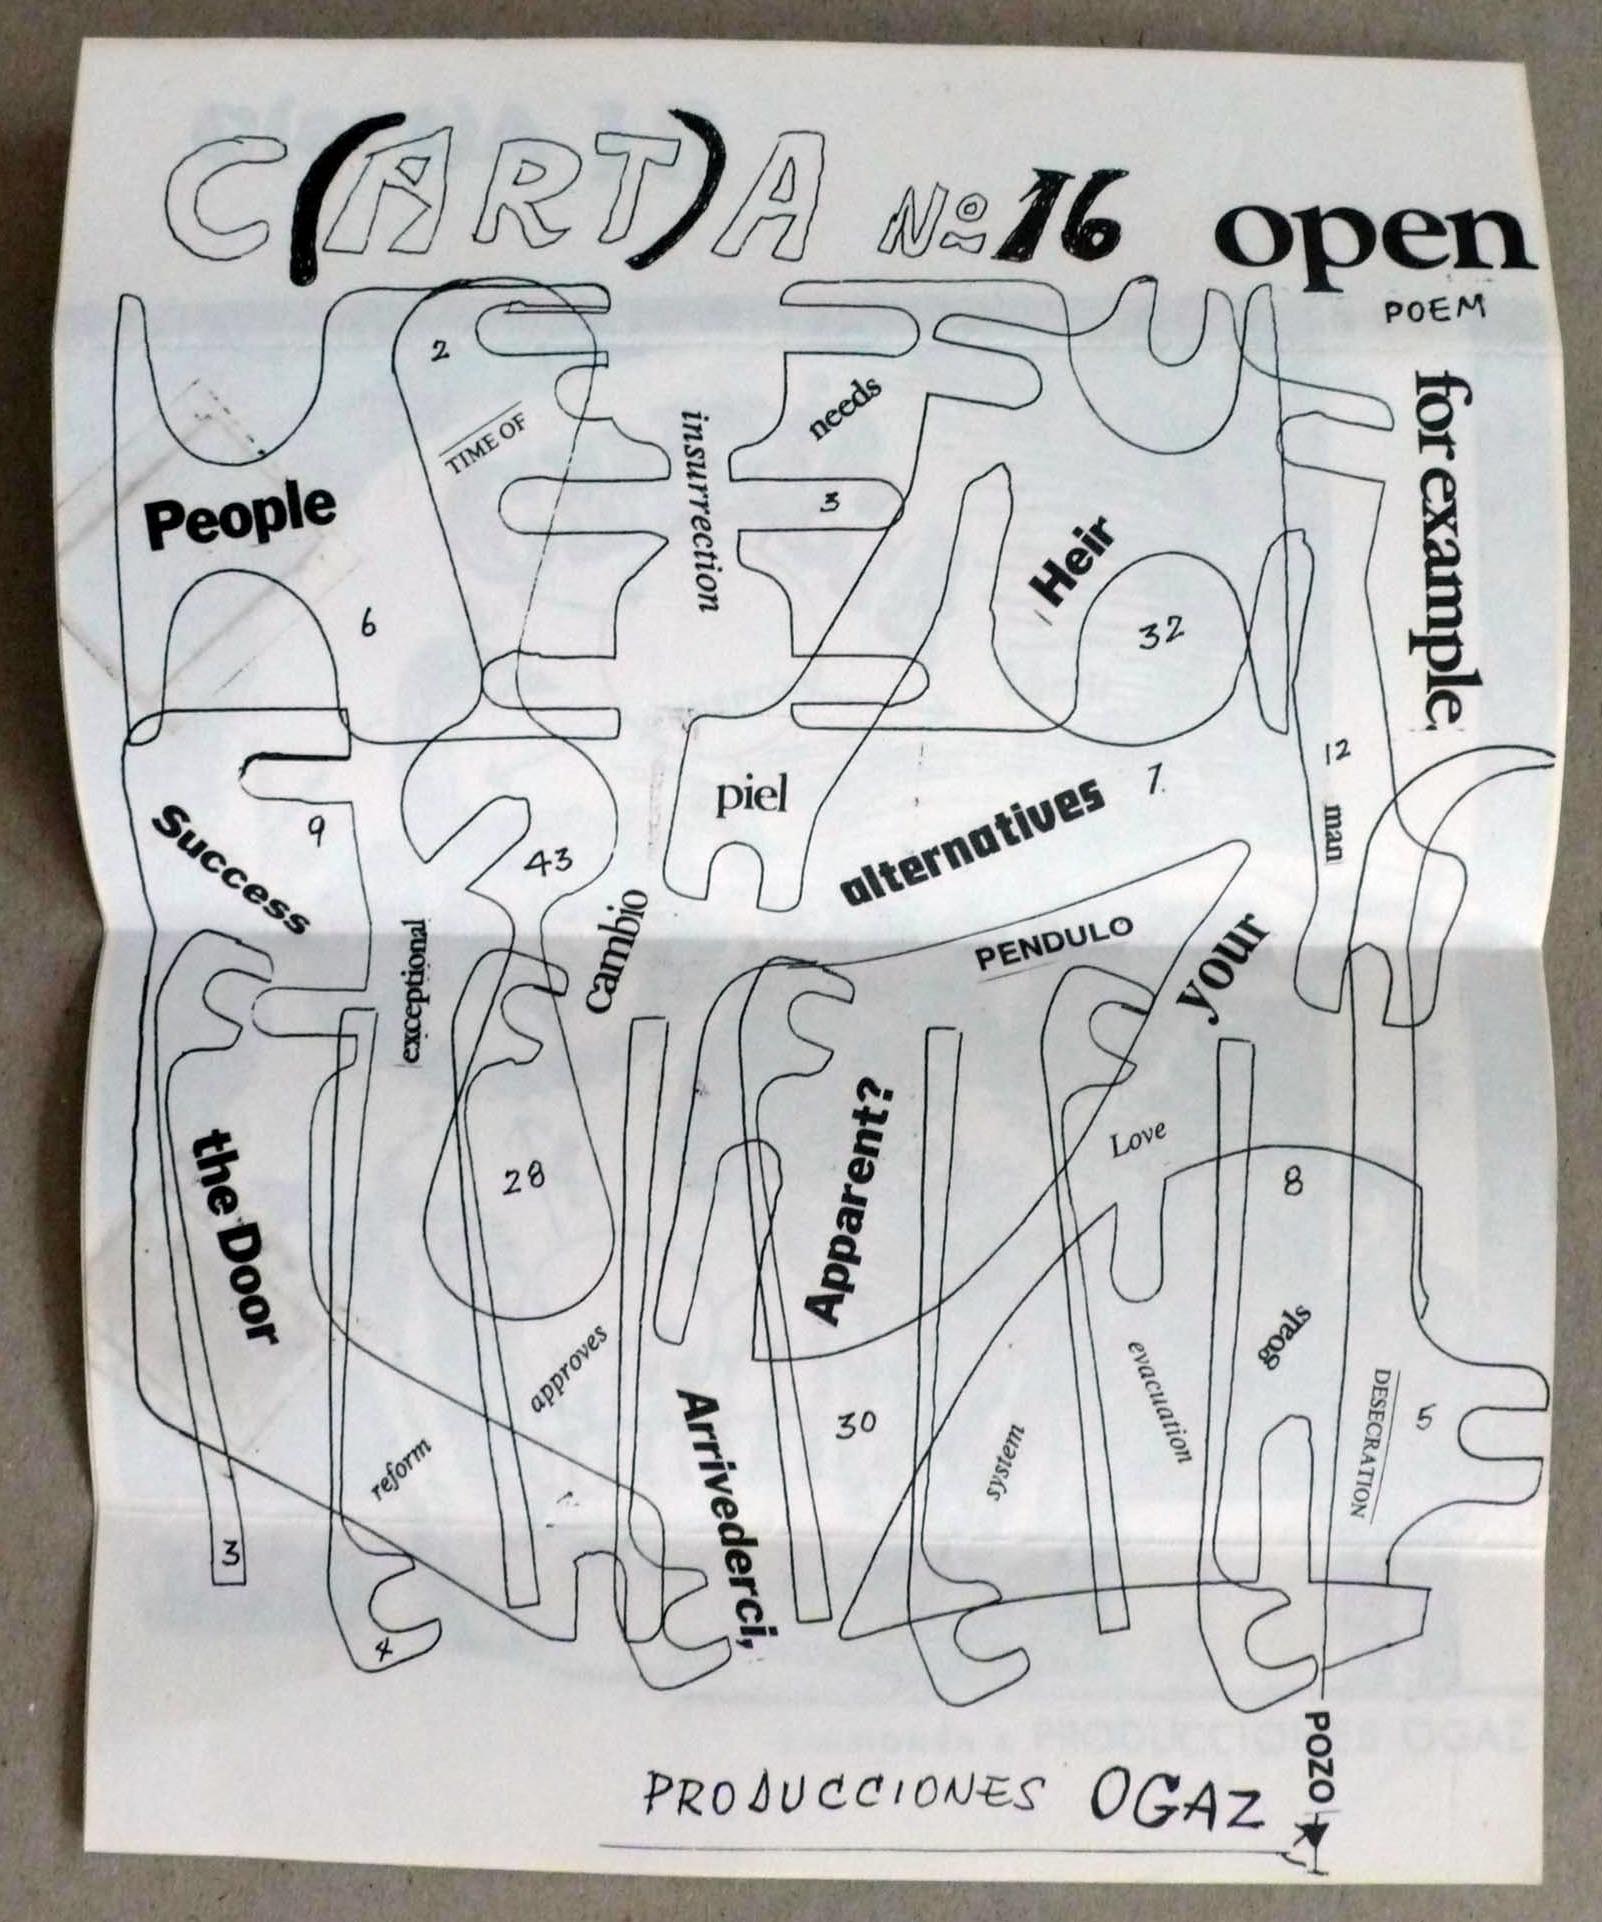 C(ART)A Nº 16 open
POEM
for example
2
TIME OF
insurrection
needs
3
People
6
Heir
32
piel
alternatives
1.
12
man
Success
9
43
cambio
exceptional
PENDULO
your
the Door
28
Apparent?
Love
8
goals
approves
reform
Arrivederci,
30
system
evacuation
DESECRATION
5
3
4
POZO
PRODUCCIONES OGAZ